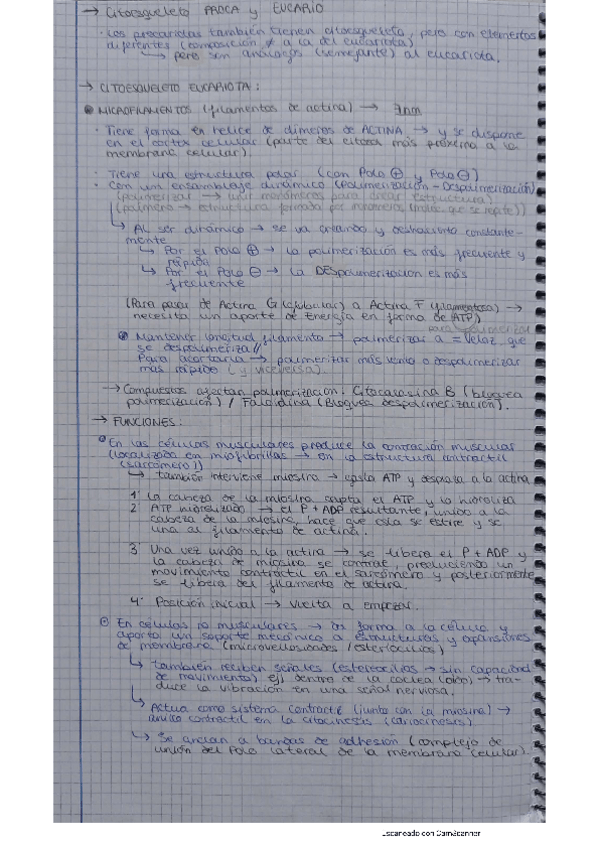 → Citoesqueleto PROCA y EUCARIO
· Los procariotas también tienen citoesqueleto, pero con elementos
diferentes (composición ≠ a la del eucariota)
↳ pero son análogos (semejante) al eucariota.
→ CITOESQUELETO EUCARIOTA:
MICROFILAMENTOS (filamentos de actina) → 7nm
· Tiene forma en hélice de dímeros de ACTINA → y se dispone
en el cortex celular (parte del citosol más próxima a la
membrana celular).
· Tiene una estructura polar (con Polo ⊕ y Polo ⊖)
· Con un ensamblaje dinámico (polimerización - Despolimerización)
(polimerizar → unir monómeros para crear estructura)
(polímero → estructura formada por monómeros que se repite))
↳ Al ser dinámico → se va creando y destruyendo constante-
mente
↳ Por el Polo ⊕ → la polimerización es más frecuente y
rápida
↳ Por el Polo ⊖ → la DESpolimerización es más
frecuente
(Para pasar de Actina G (globular) a Actina F (filamentosa) →
necesita un aporte de Energía en forma de ATP)
para polimerizar
Mantener longitud filamento → polimerizar a = veloz. que
se despolimeriza //
Para acortarla → polimerizar más lento o despolimerizar
más rápido (y viceversa).
→ Compuestos afectan polimerización: Citocalasina B (bloquea
polimerización) / Faloidina (Bloquea despolimerización).
→ FUNCIONES:
En las células musculares produce la contracción muscular
(localizada en miofibrillas → en la estructura contráctil
(sarcómero))
↳ también interviene miosina → gasta ATP y desplaza a la actina
1º La cabeza de la miosina capta el ATP y lo hidroliza
2º ATP hidrolizado → el P + ADP resultante, unido a la
cabeza de la miosina, hace que esta se estire y se
una al filamento de actina.
3º Una vez unido a la actina → se libera el P + ADP y
la cabeza de miosina se contrae, produciendo un
movimiento contráctil en el sarcómero y posteriormente
se libera del filamento de actina.
4º Posición inicial → vuelta a empezar.
En células no musculares → da forma a la célula y
aporta un soporte mecánico a estructuras y expansiones
de membrana (microvellosidades / estereocilios)
↳ también reciben señales (estereocilios → sin capacidad
de movimiento) ej) dentro de la coclea (oído) → tra-
duce la vibración en una señal nerviosa.
↳ Actua como sistema contractil (junto con la miosina) →
anillo contráctil en la citocinesis (cariocinesis)
↳ Se anclan a bandas de adhesión (complejo de
unión del Polo lateral de la membrana celular).
Escaneado con CamScanner